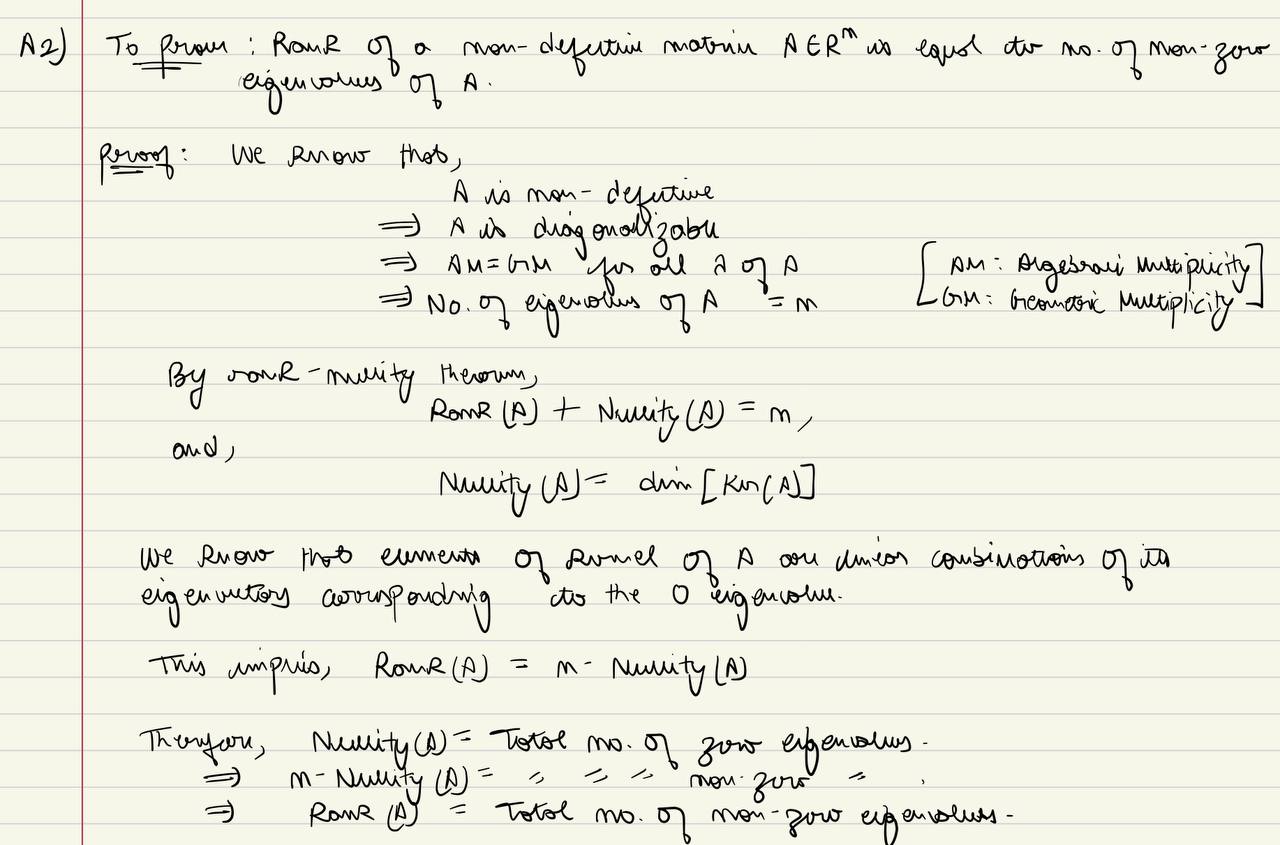 A2) To prove : Rank of a non-defective matrix A ∈ Rⁿ is equal to no. of non-zero
eigenvalues of A.
Proof : We know that,
A is non-defective
⇒ A is diagonalizable
⇒ AM = GM for all λ of A [AM : Algebraic Multiplicity
⇒ No. of eigenvalues of A = n GM : Geometric Multiplicity]
By rank-nullity theorem,
Rank (A) + Nullity (A) = n,
and,
Nullity (A) = dim [Ker(A)]
We know that elements of kernel of A are linear combinations of its
eigenvectors corresponding to the 0 eigenvalue.
This implies, Rank (A) = n - Nullity (A)
Therefore, Nullity (A) = Total no. of zero eigenvalues.
⇒ n - Nullity (A) = " " " non-zero " .
⇒ Rank (A) = Total no. of non-zero eigenvalues.